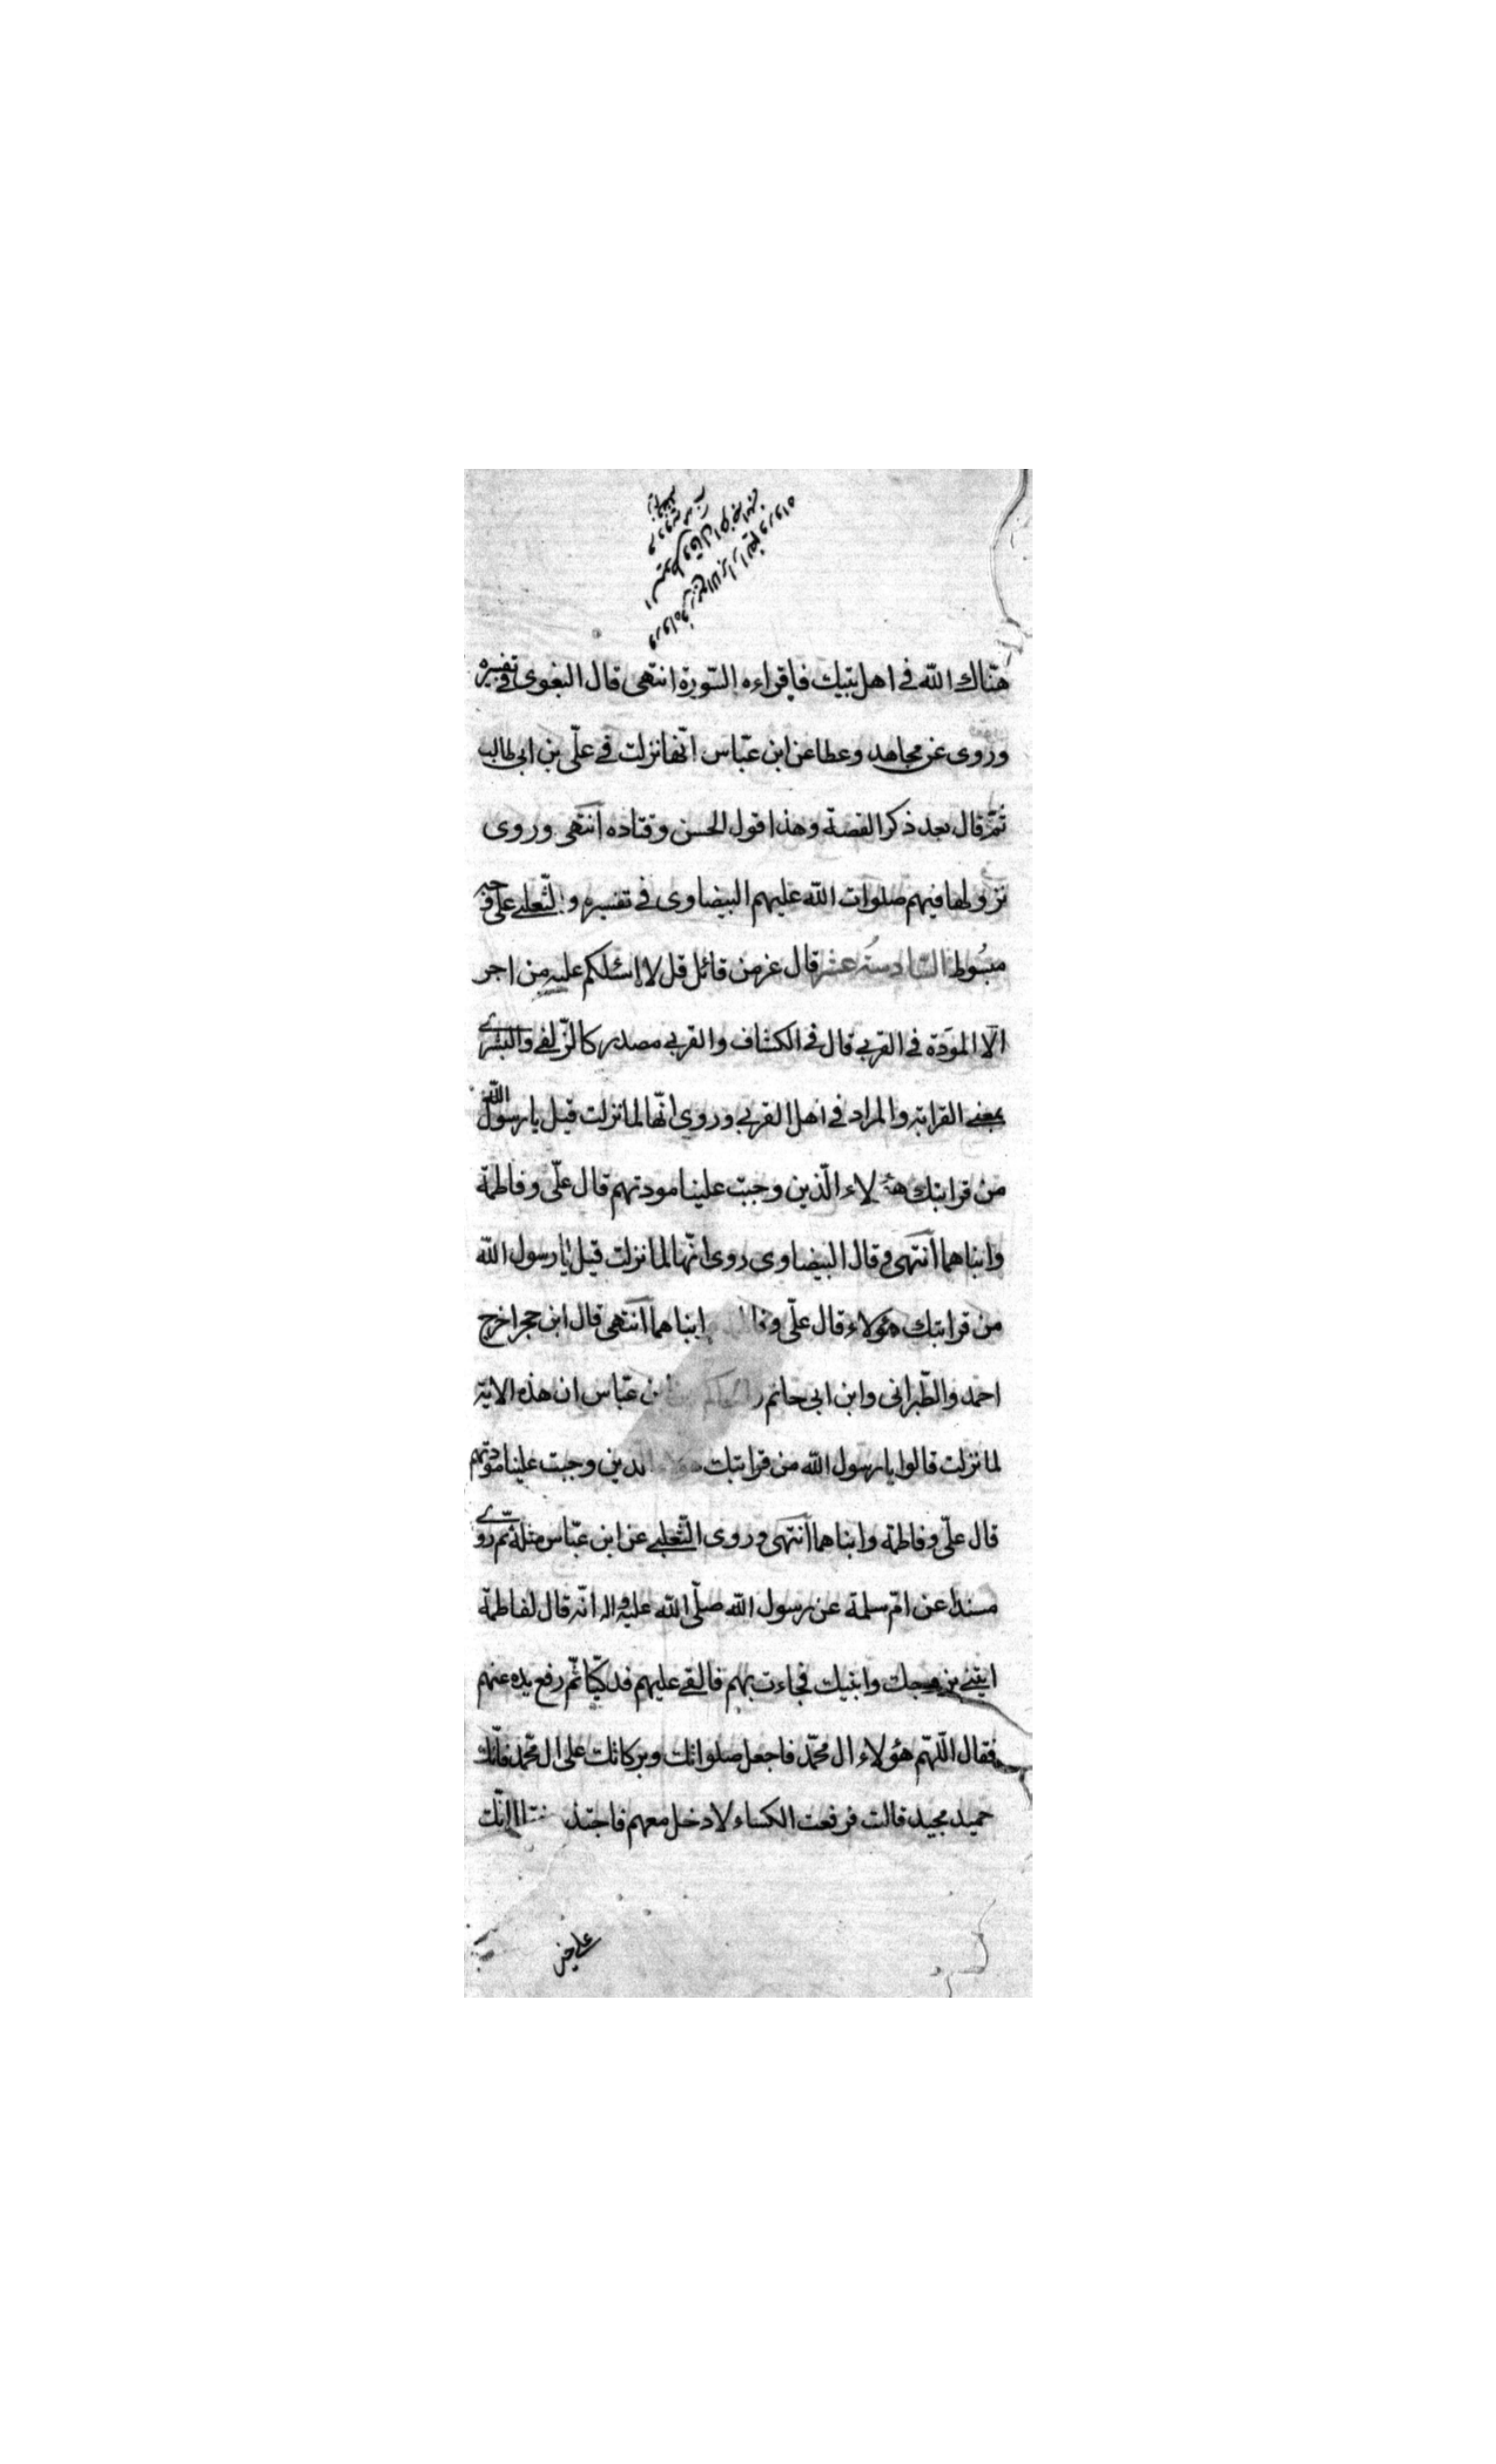 هنّاك الله في اهل بيتك فاقراءه السّورة انتهى قال البغوى في تفسيره
وروى عن مجاهد وعطا عن ابن عبّاس انّها نزلت في علّى بن ابى طالب
ثمّ قال بعد ذكر القصة وهذا قول الحسن وقتاده انتهى وروى
نزولها فيهم صلوات الله عليهم البيضاوى في تفسيره والثّعلبے على وجه
مبسُوط السّادسة عشر قال عز من قائل قل لا اسئلكم عليه من اجر
الّا المودّة في القربے قال في الكشاف والقربے مصدر كالزّلفے والبشرے
بمعنے القرابة والمراد في اهل القربے وروى انّها لما نزلت قيل يا رسول الله
من قرابتك هؤلاء الّذين وجبت علينا مودتهم قال علّى وفاطمة
وابناهما انتهى وقال البيضاوى روى انّها لما نزلت قيل يا رسول الله
من قرابتك هؤلاء قال علّى ابناهما انتهى قال ابن حجر اخرج
احمد والطّبرانى وابن ابى حاتم والحاكم عن ابن عبّاس ان هذه الاية
لما نزلت قالوا يا رسول الله من قرابتك هؤلاء الذين وجبت علينا مودتهم
قال علّى وفاطمة وابناهما انتهى وروى الثّعلبے عن ابن عبّاس مثله ثمّ روے
مسندا عن امّ سلمة عن رسول الله صلّى الله عليه واله انّه قال لفاطمة
ايتنے بزوجك وابنيك فجاءت بهم فالقے عليهم فدكيّا ثمّ رفع يده عنهم
فقال اللّهّم هؤلاء ال محمّد فاجعل صلواتك وبركاتك على ال محمّد فانّك
حميد مجيد قالت فرفعت الكساء لادخل معهم فاجتذ انّك